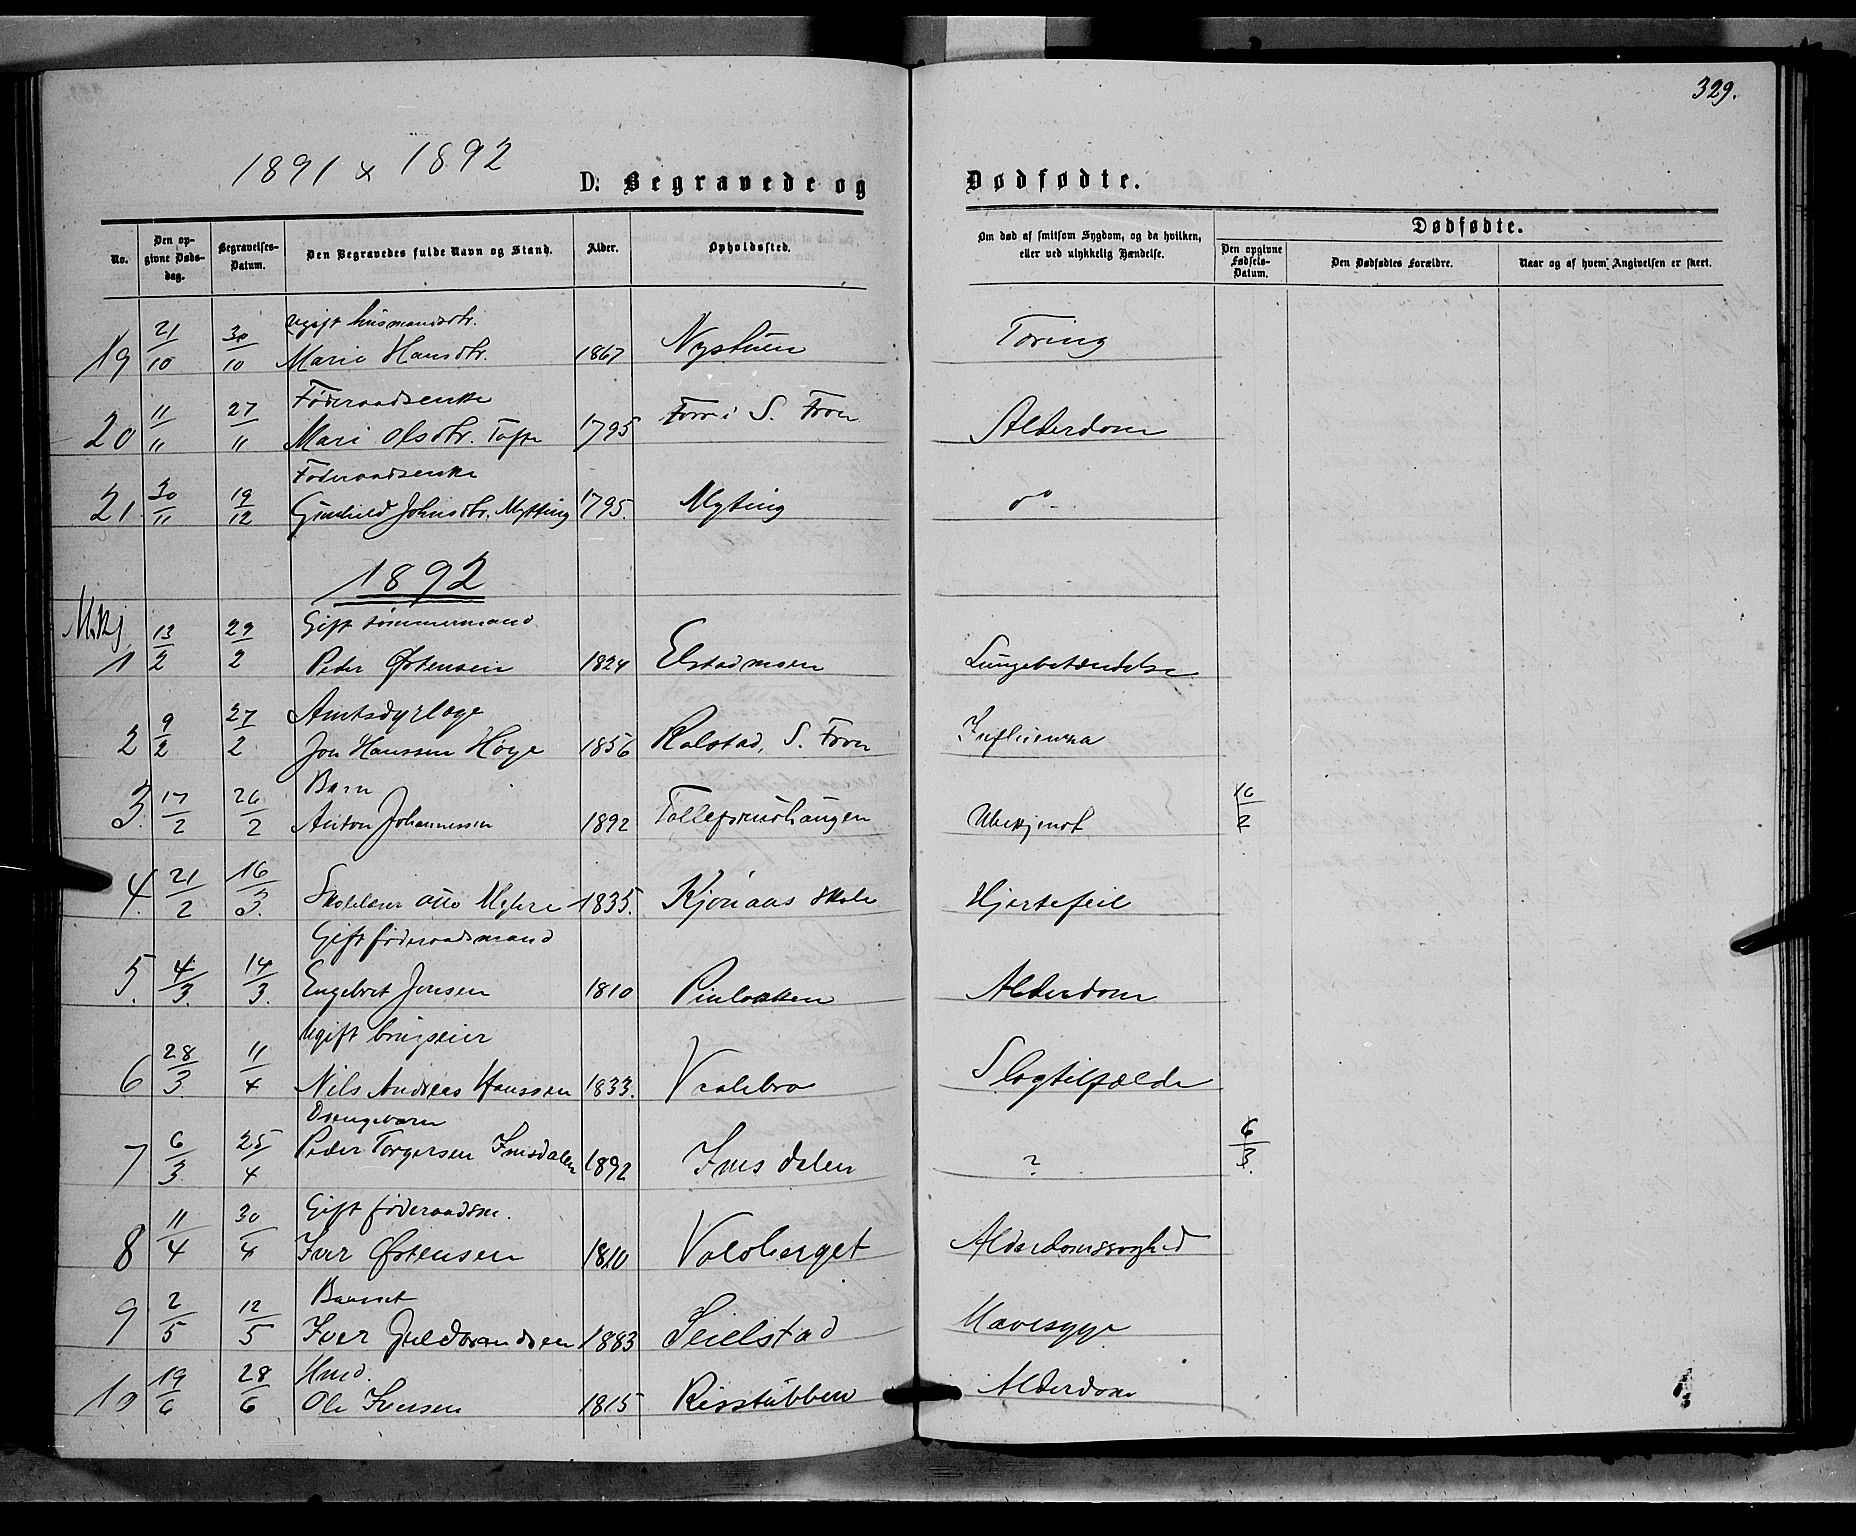 329.
1891 & 1892
D: Begravede og Dødfødte.
No. Den opgivne Dødsdag. Begravelses-Datum. Den Begravedes fulde Navn og Stand. Alder. Opholdssted. Om død af smitsom Sygdom, og da hvilken, eller ved ulykkelig Hændelse. Dødfødte. Den opgivne Fødsels-Datum. Den Dødfødtes Forældre. Naar og af hvem Angivelsen er skeet.
ugift husmandsdtr.
19 21/10 30/10 Marie Hansdtr. 1867 Nystuen Tæring
Føderaadsenke
20 11/11 27/11 Mari Olsdtr. Tofte 1795 Forr i S. Fron Alderdom
Føderaadsenke
21. 30/11 19/12 Gunhild Johnsdtr. Mytting 1795. Myting do
1892
M.Kj
Gift tømmermand
1 13/2 29/2 Peder Østensen 1824 Elstadmoen Lungebetændelse
Amtsdyrlæge
2 9/2 27/2 Jon Hanssen Høye 1856 Kolstad, S. Fron Influenza
Barn
3. 17/2 26/2 Anton Johannessen 1892 Tollefsrudhaugen Ubekjendt 16/2
4. 21/2 16/3. Skolelærer Otto Myhre 1835. Kjønaas skole Hjertefeil
Gift føderaadsmand
5. 4/3. 14/3. Engebret Jonsen 1810 Pinløkken Alderdom
Ugift brugseier
6 28/3. 11/4 Nils Andreas Hanssen 1833. Vaalebro Slagtilfælde
Drengebarn
7 6/3. 25/4 Peder Torgersen Imsdalen 1892 Imsdalen ? 6/3.
Gift føderaadsm.
8 11/4 30/4 Iver Østensen 1810 Voldberget Alderdomssvaghed
Barnet
9 2/5 12/5 Iver Guldbrandsen 1883 Seielstad Mavesyge
Hmd.
10 19/6 28/6 Ole Iversen 1815 Risstubben Alderdom